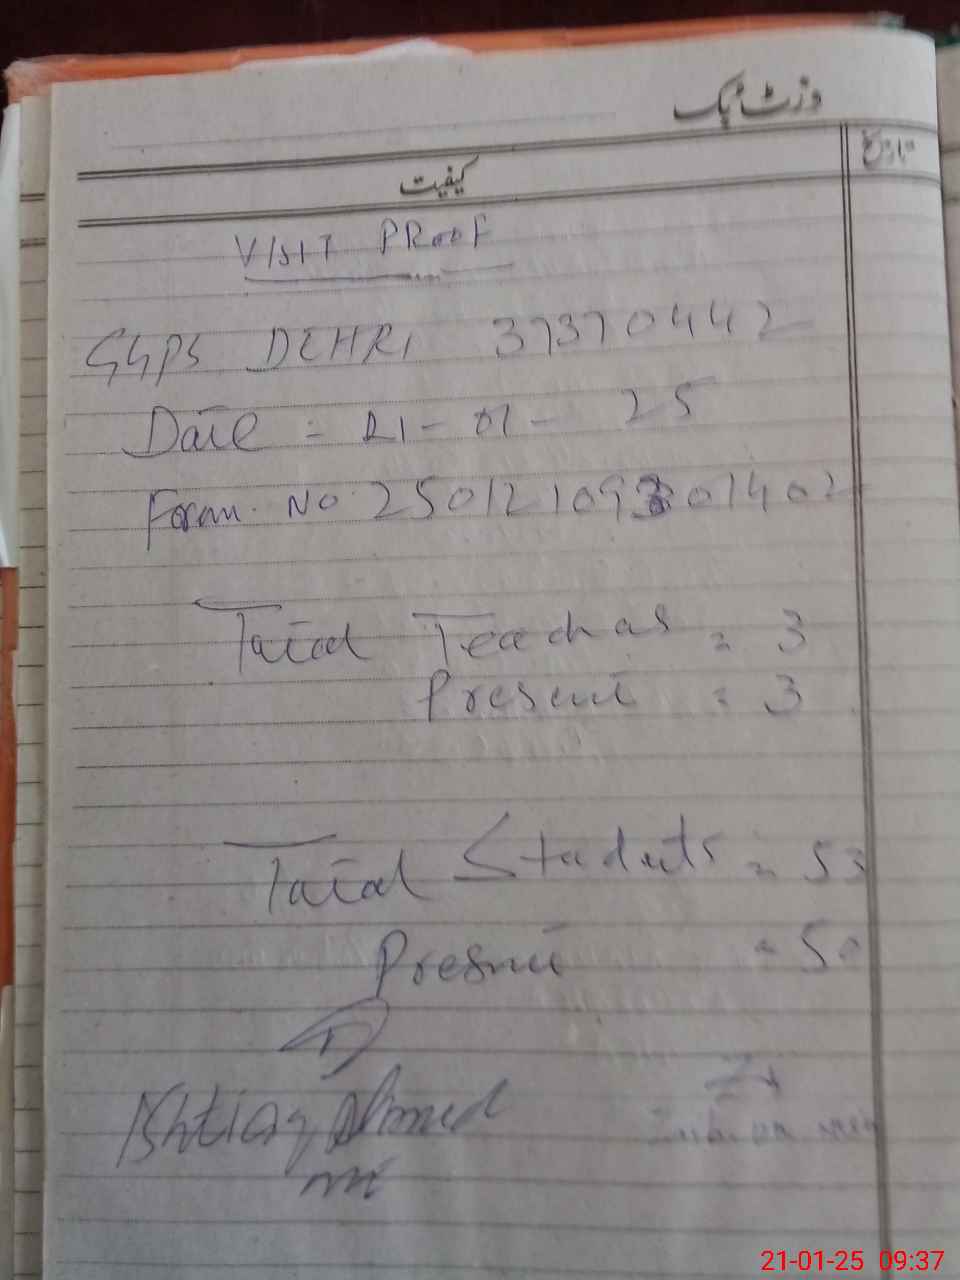 وزٹ بک
تاریخ
کیفیت
VISIT PROOF
GGPS DEHRI 37370442
Date = 21-01-25
Form No 25012109301402
Total Teachers = 3
Present = 3
Total Students = 53
Present = 50
Ishtiaq Ahmed
21-01-25 09:37